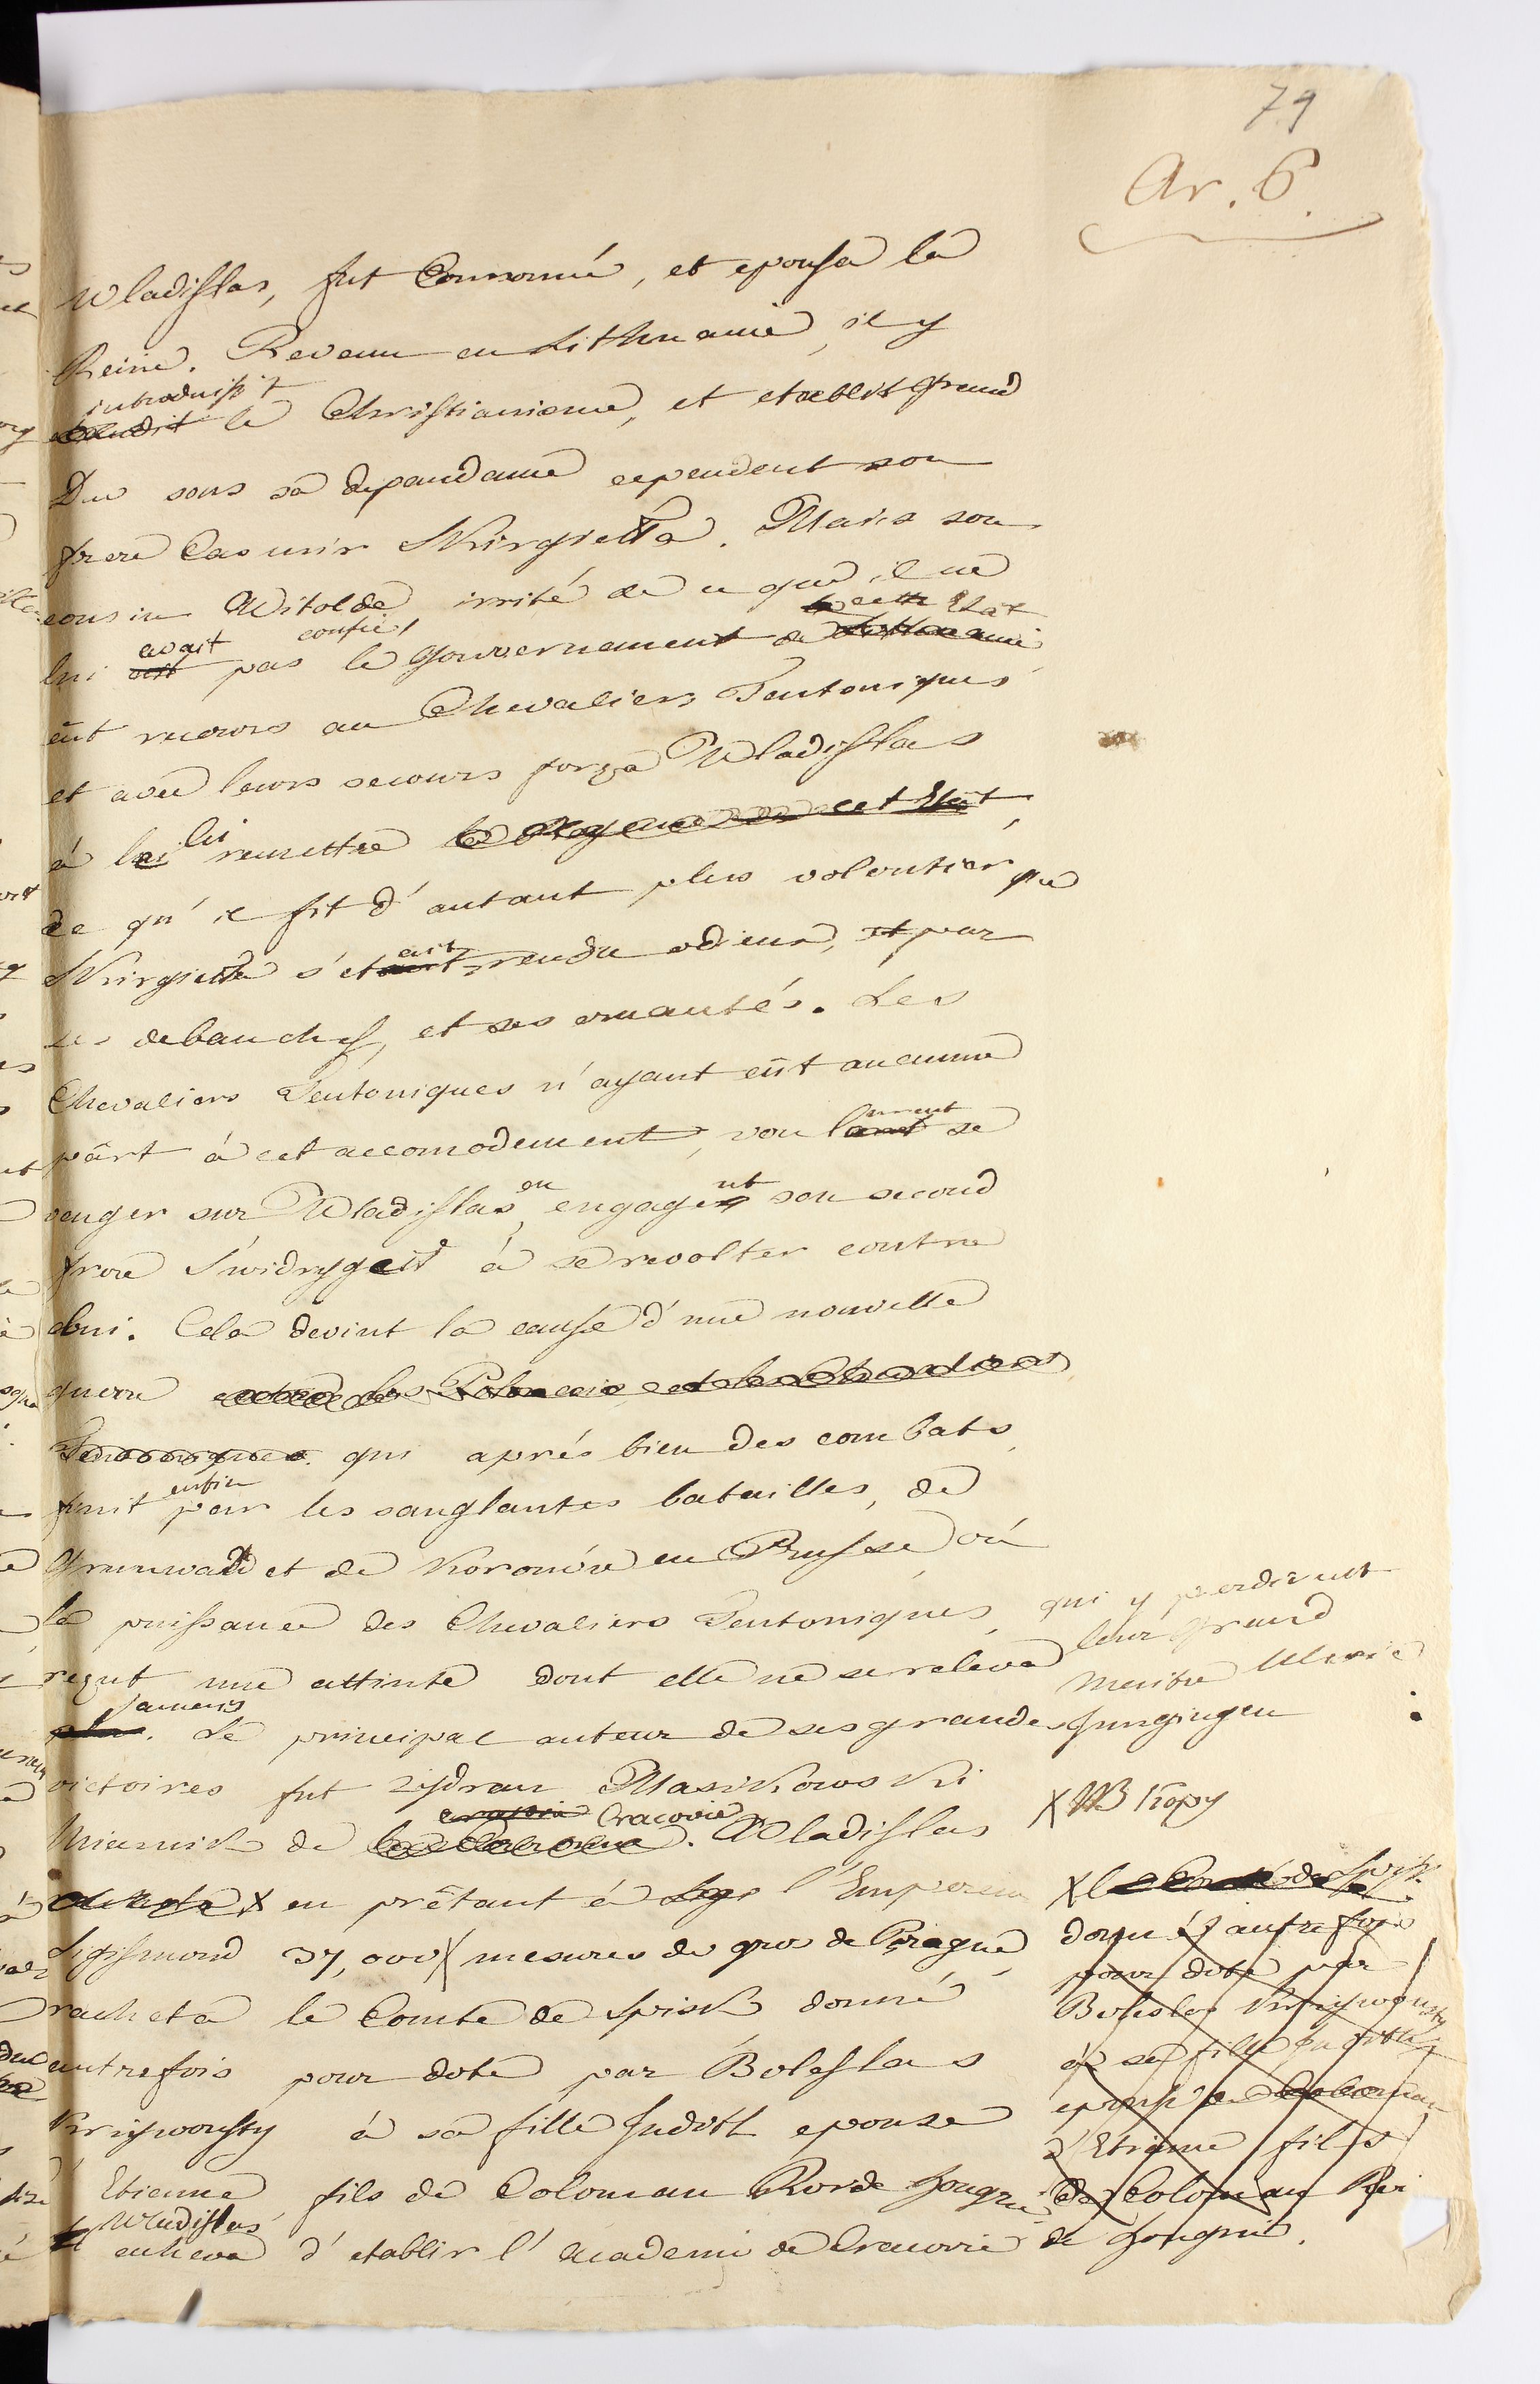 79
Ar. 6.
Wladislas, fut Couronné, et epousa la
Reine. Revenu en Lithuanie, il y
introduisit
le Christianisme, et etablit Grand
Duc sous sa dependance cependent son
frere Casimir Skirgiella. Mais son
cousin Witolde, irrité de ce que il ne
cette Etat
avait confié
lui pas le Gouvernement de Lithuanie
eût recours au Chevaliers Teutoniques
et avec leurs secours força Wladislas
à lui remettre cet Etat,
ce qu'il fit d'autant plus volontier que
Skirgiella s'etait rendu odieux, et par
ses debauches, et ses cruautés. Les
Chevaliers Teutoniques n'ayant eût aucune
pârt à cet accomodement, voulurent se
venger sur Wladislas, en engagent son second
frere Swidrygeil à se revolter contre
lui. Cela devint la cause d'une nouvelle
guerre entre les Polonais et les Chevaliers
Teutoniques. qui aprés bien des combats,
enfin
finit par les sanglantes batailles, de
Grunwald et de Koronów en Prusse, où
la puissance des Chevaliers Teutoniques, qui y perdirent
leur Grand
reçut une attinte dont elle ne se releva
Maitre Ulric
jamais
plus. Le principal auteur de ses grandes Jungingen
victoires fut Zydram Maszkowski
Cracovie
Miecznik de . Wladislas
X NB Kopy
X en prêtant à l'Empereur
Sigismond 37,000 X mesures de gros de Prague,
racheta le Comté de Spisk donné
autrefois pour dote par Boleslas
Krzywousty à sa fille Judith epouse
d'Etienne fils de Coloman Roi de Hongrie.
Wladislas
acheva d'etablir l'Academie de Cracovie
X le Comté de Spisk
donné autrefois
pour dote par
Boleslas Krzywousty
à sa fille Juditte
epouse de Coloman
d'Etienne fils
de Coloman Roi
de Hongrie.